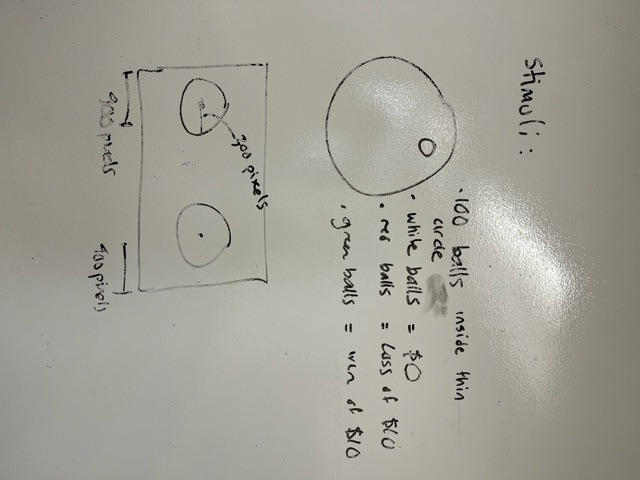 Stimuli:
• 100 balls inside thin
circle
• white balls = $0
• red balls = Loss of $10
• green balls = win of $10
300 pixels
900 pixels
900 pixels